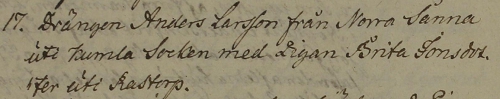 17. Drängen Anders Larsson från Norra Sanna
uti Kumla Socken med Pigan Brita Jonsdot.
ter uti Rastorp.